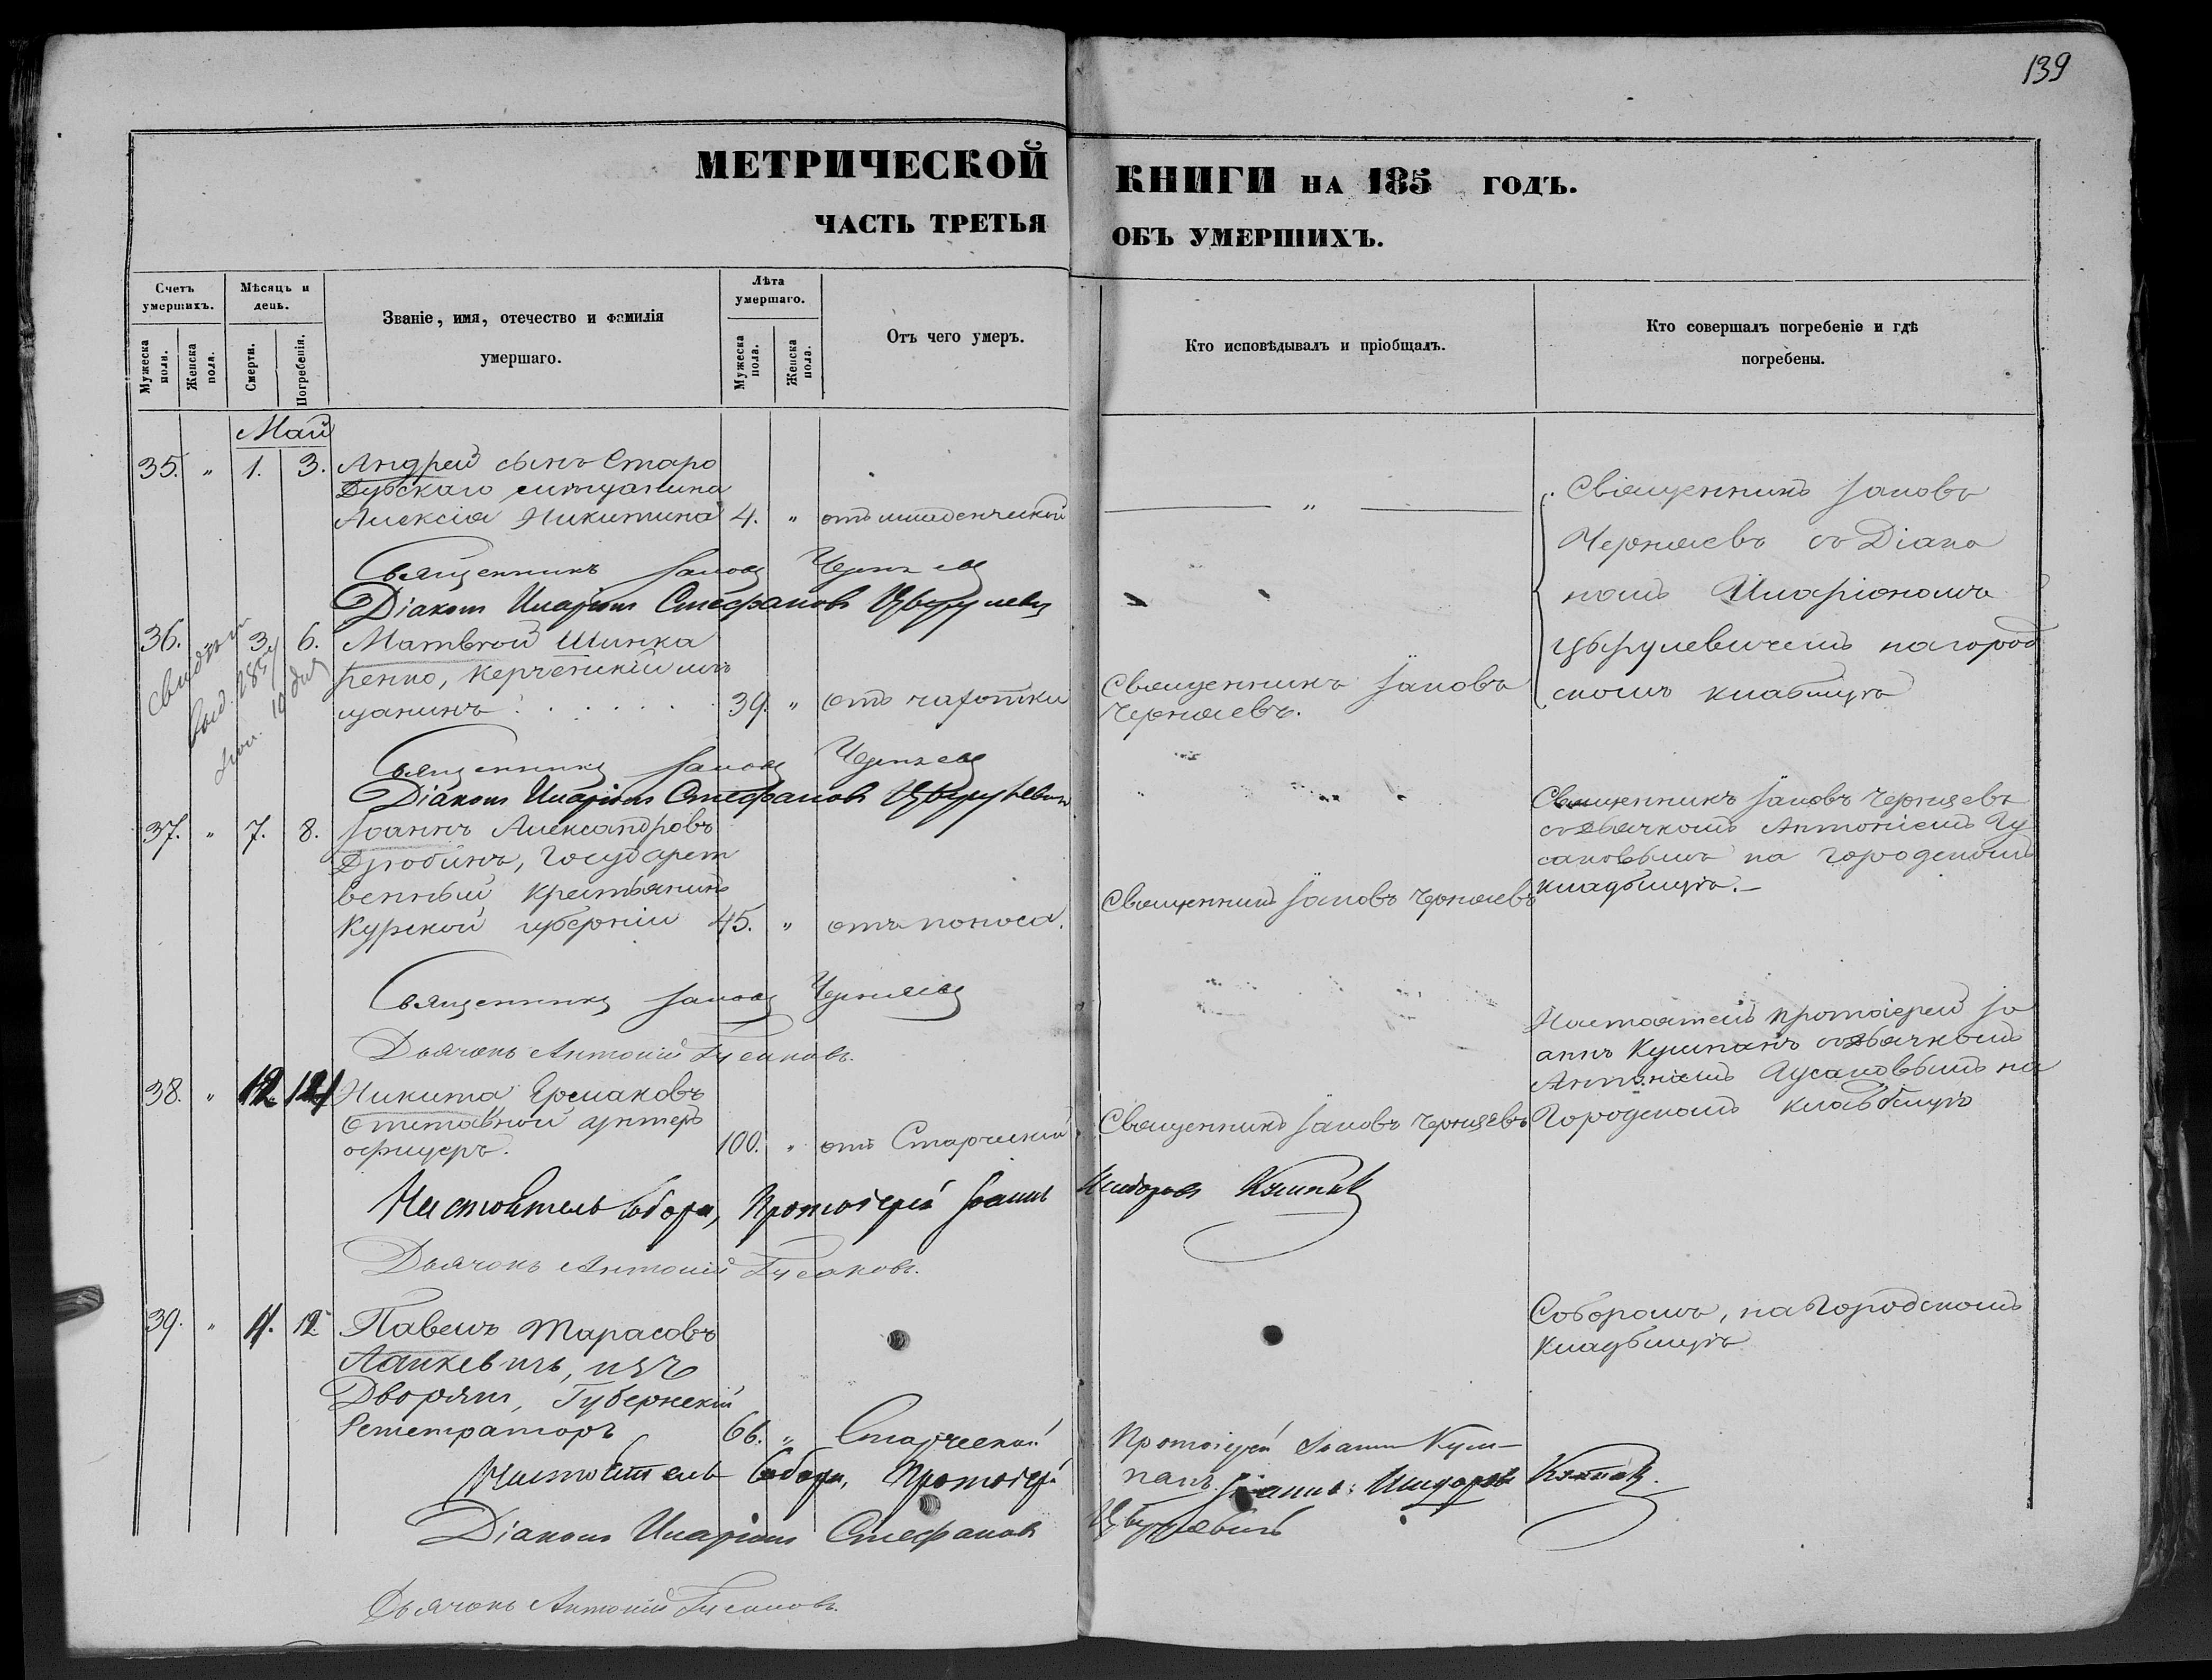 139
МЕТРИЧЕСКОЙ КНИГИ НА 185 ГОДЪ.
ЧАСТЬ ТРЕТЬЯ ОБЪ УМЕРШИХЪ.
Счетъ умершихъ.
Мѣсяцъ и день.
Званіе, имя, отечество и фамилія умершаго.
Лѣта умершаго.
Отъ чего умеръ.
Кто исповѣдывалъ и пріобщалъ.
Кто совершалъ погребеніе и гдѣ погребены.
Мужеска пола.
Женска пола.
Смерти.
Погребенія.
Мужеска пола.
Женска пола.
Май
35. " 1. 3. Андрей сынъ Старо
Дубскаго мѣщанина
Алексія Никитина 4. " отъ младенческой "
Священникъ Іаковъ
Черняевъ съ Діако
номъ Иларіономъ
Цвѣрулевичемъ на город
скомъ кладбищѣ
Священникъ Іаковъ Черняевъ
Діаконъ Иларіонъ Стефановъ
36. 3. 6. Матвѣй Шинка
ренко, Керченскій мѣ
щанинъ 39. " отъ чахотки
Священникъ Іаковъ
Черняевъ.
Священникъ Іаковъ Черняевъ
Діаконъ Иларіонъ Стефановъ
37. " 7. 8. Іоаннъ Александровъ
Дзюбинъ, Государст
венный крестьянинъ
Курской губерніи 45. " отъ поноса.
Священникъ Іаковъ Черняевъ
Священникъ Іаковъ Черняевъ
съ дьячкомъ Антоніемъ Гу
саковымъ на городскомъ
кладбищѣ.
Священникъ Іаковъ Черняевъ
Дьячокъ Антоній Гусаковъ.
38. " 12. 14 Никита Ермаковъ
Отставной унтеръ
офицеръ. 100. " отъ Старческой
Священникъ Іаковъ Черняевъ
Настоятель протоіерей Іо
аннъ Кушпанъ съ дьячкомъ
Антоніемъ Гусаковымъ на
Городскомъ кладбищѣ
Настоятель Собора, Протоіерей Іоаннъ
Дьячокъ Антоній Гусаковъ.
39. " 11. 12 Павелъ Тарасовъ
изъ
Дворянъ, Губернскій
Регистраторъ 66. " Старческой
Протоіерей Іоаннъ
Соборомъ, на Городскомъ
Кладбищѣ
Настоятель Собора, Протоіерей Іоаннъ
Діаконъ Иларіонъ Стефановъ
Дьячокъ Антоній Гусаковъ.